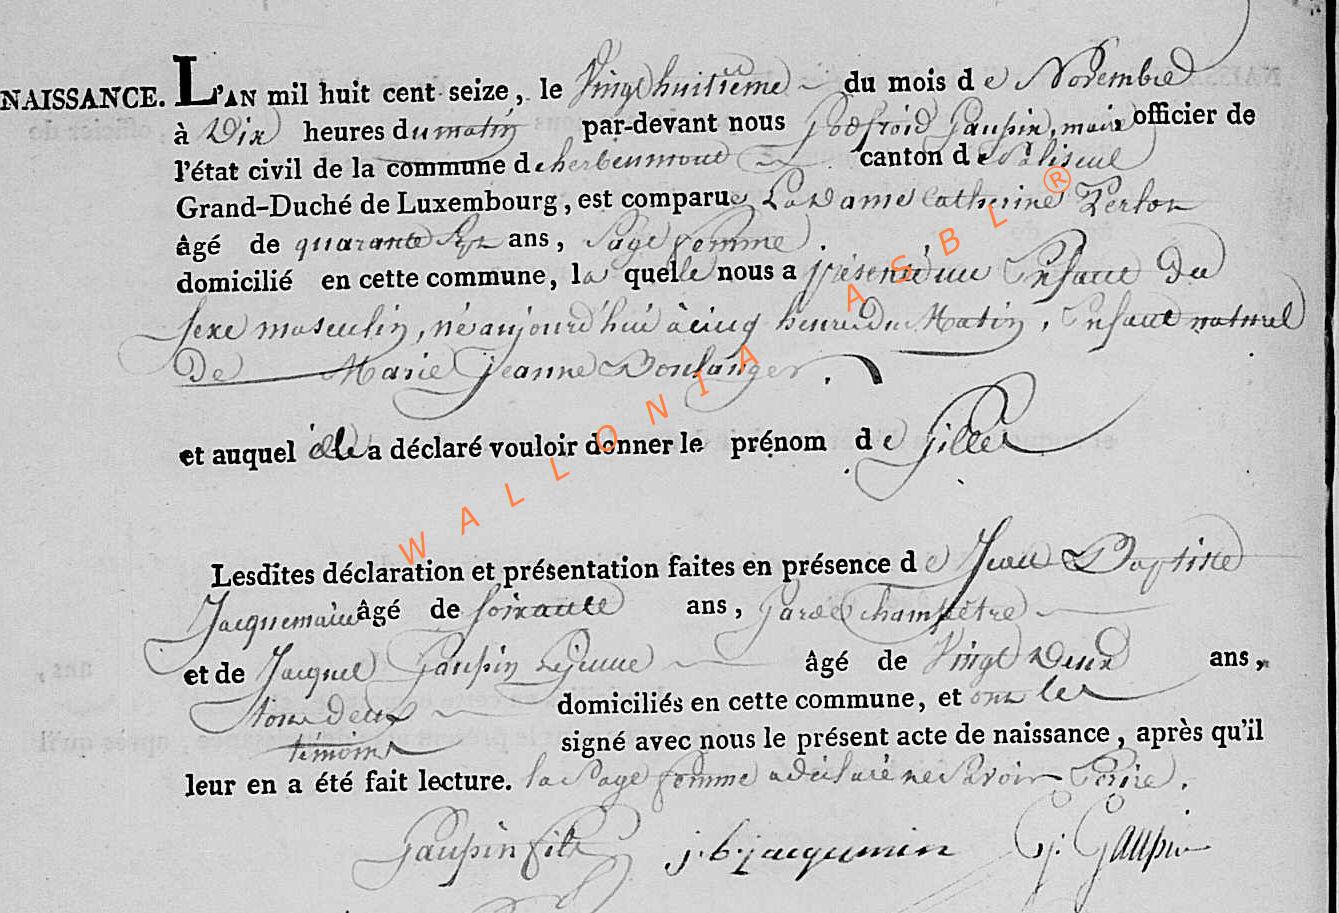 NAISSANCE. L'AN mil huit cent seize, le Vingt huitième du mois de Novembre
à Dix heures du matin par-devant nous Godfroid Gaupin, maire officier de
l'état civil de la commune de herbeumont canton de Paliseul
Grand-Duché de Luxembourg, est comparue La Dame Catherine Perlon
âgé de quarante Sept ans, Sage femme.
domicilié en cette commune, la quelle nous a présenté un Enfant Du
sexe masculin, né aujourd'hui à cinq heures Du Matin, Enfant naturel
De Marie Jeanne Boulanger.
et auquel elle a déclaré vouloir donner le prénom de Gilles
Lesdites déclaration et présentation faites en présence de Jean Baptiste
Jacquemin âgé de soixante ans, Garde Champêtre
et de Jacques Gaupin Le jeune âgé de Vingt Deux ans,
tous deux domiciliés en cette commune, et ont les
témoins signé avec nous le présent acte de naissance, après qu'il
leur en a été fait lecture. la Sage femme a déclaré ne Savoir Ecrire.
Gaupin fils j. b. jacquemin G. Gaupin
WALLONIA ASBL ®